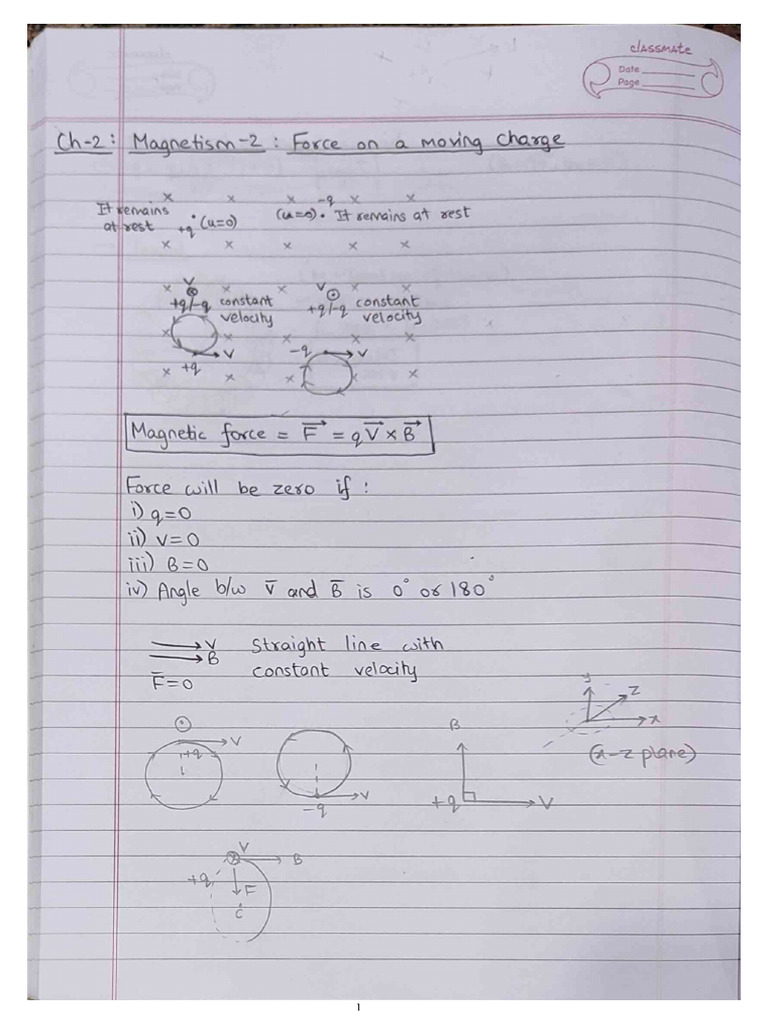 classmate
Date
Page
Ch-2: Magnetism-2: Force on a moving charge
It remains at rest
+q (u=0)
-q
(u=0). It remains at rest
V
+q/-q constant velocity
V
+q/-q constant velocity
V
+q
-q
V
Magnetic force = F⃗ = qV⃗ × B⃗
Force will be zero if:
i) q=0
ii) v=0
iii) B=0
iv) Angle b/w V̄ and B̄ is 0° or 180°
V
B
F̄=0
Straight line with
constant velocity
y
z
x
(x-z plane)
V
+q
V
-q
B
+q
V
V
B
+q
F
C
1